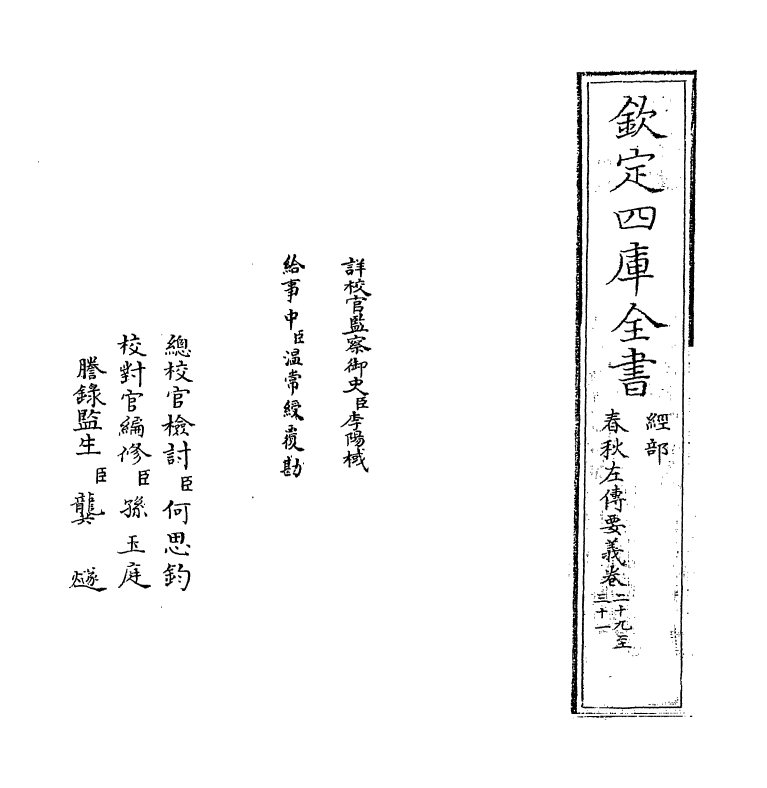 欽定四庫全書
經部
春秋左傳要義卷二十九至
三十一
詳校官監察御史臣李陽棫
給事中臣温常綬覆勘
總校官檢討臣何思鈞
校對官編修臣孫玉庭
謄錄監生臣龔燧